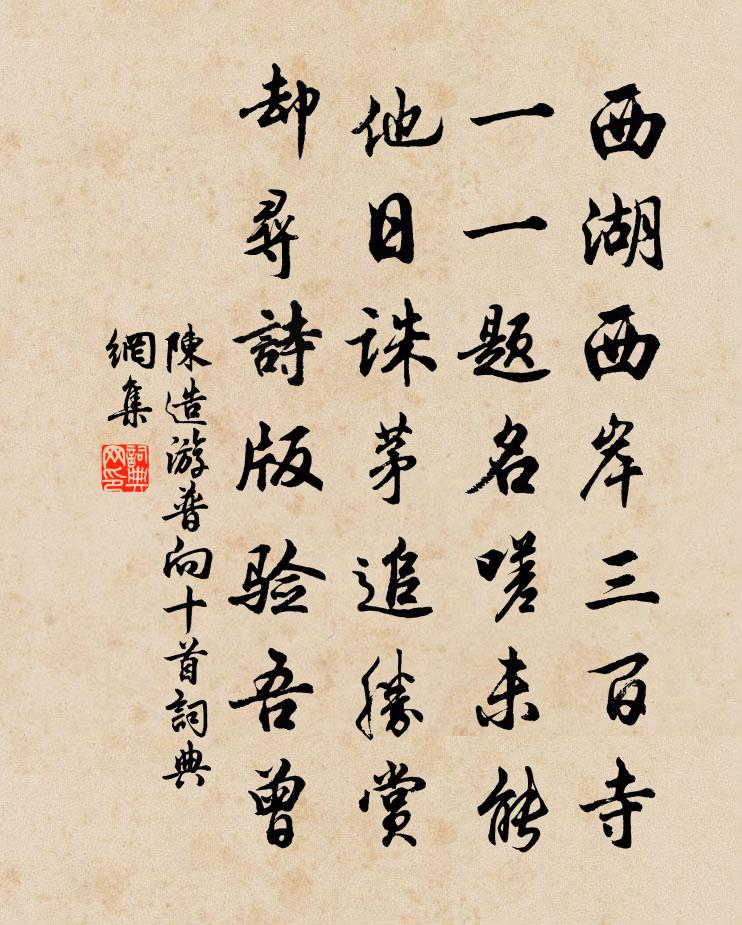 西湖西岸三百寺
一一题名嗟未能
他日誅茅追勝賞
却尋詩版验吾曾
陳造游普向十首詞典
網集
詞典
网印